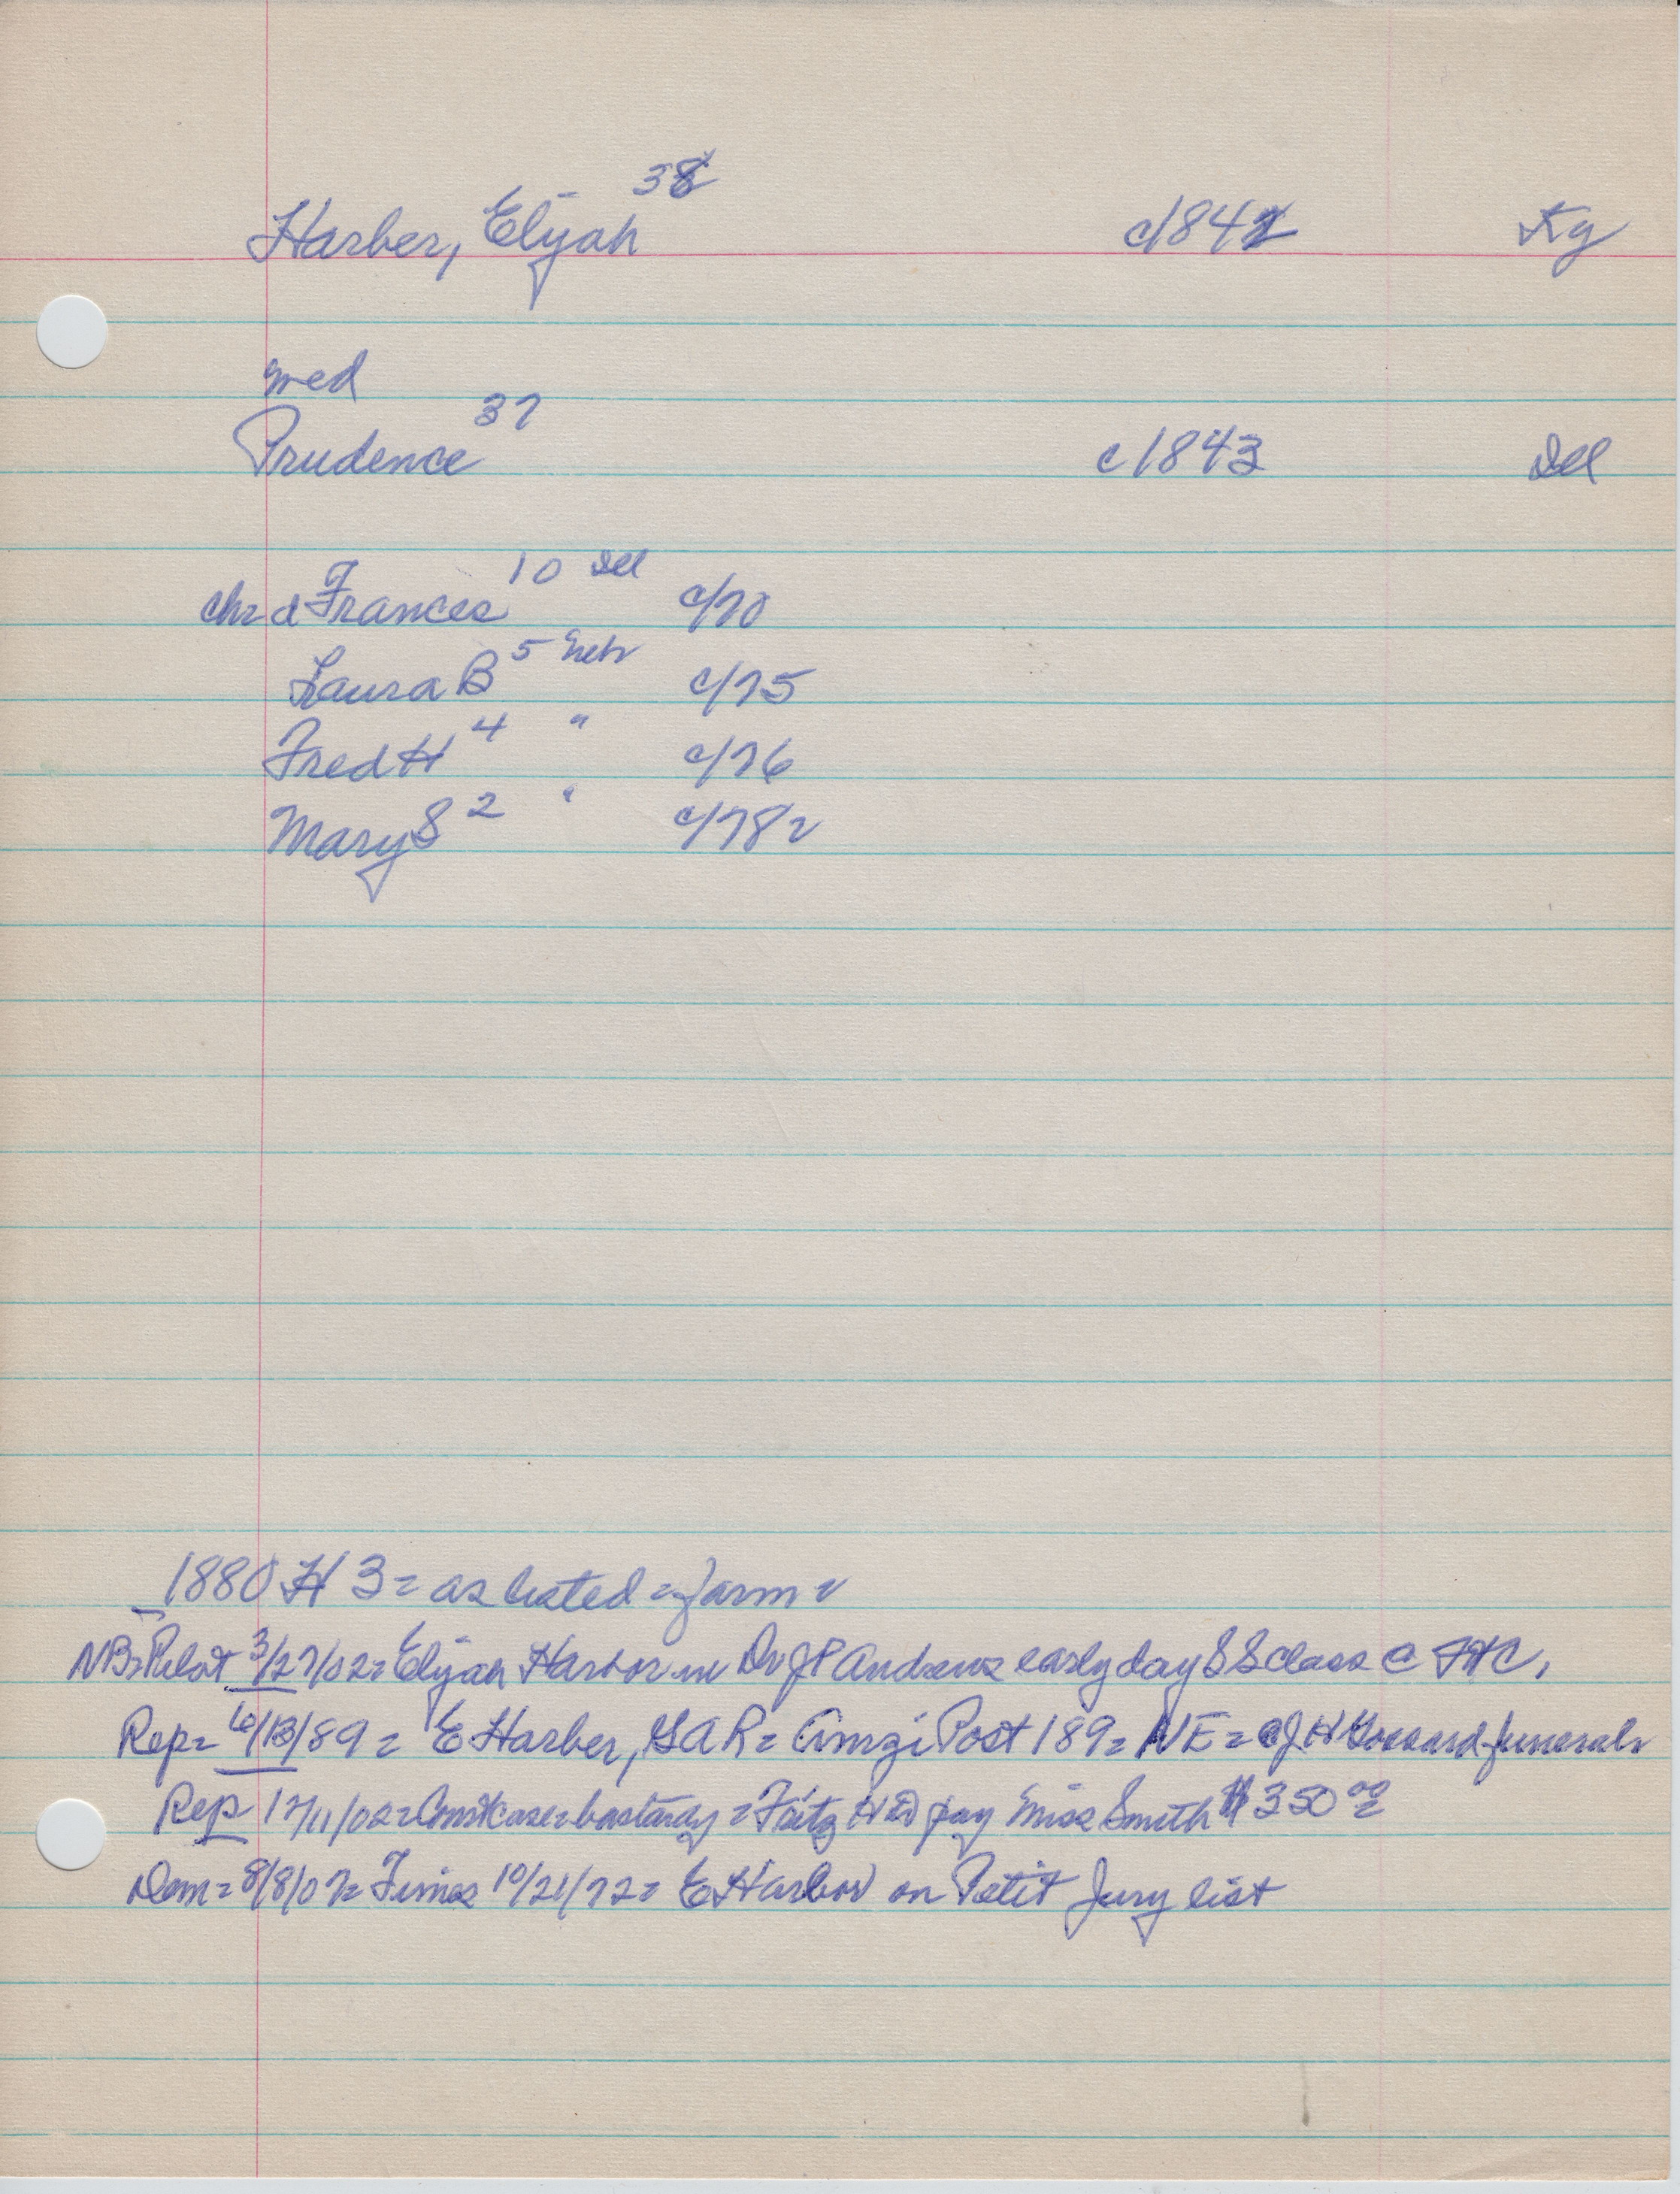 38
Harber, Elijah c1842 Kg
med
Prudence 37 c1843 Del
chr d Frances 10 Del c/70
Laura B 5 Nebr c/75
Fred H 4 " c/76
Mary S 2 " c/78
1880 H 3 = as listed = farm
NB = Pilot 3/27/02 = Elijah Harbor in Dr J P Andrews early day S S class @ FtC.
Rep = 6/13/89 = E Harber, GAR = Amzi Post 189 = NE = @ J H funeral
Rep 12/11/02 = Court case = bastardy = Fritz H to pay Miss Smith $350.00
Dem = 8/8/07 = Times 10/21/72 = E Harbor on Petit Jury list